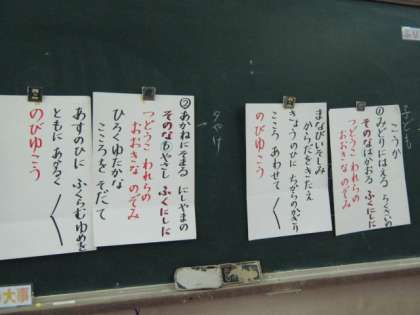 こうか
①みどりにはえる らくさいの
そのなはかおる ふくにしに
つどうこ われらの
おおきな のぞみ
まなびいそしみ
からだをきたえ
きょうのひに ちからのかぎり
こころ あわせて
のびゆこう
夕やけ
②あかねにそまる にしやまの
そのなもやさし ふくにしに
つどうこ われらの
おおきな のぞみ
ひろくゆたかな
こころを そだて
あすのひに ふくらむゆめを
ともに あかるく
のびゆこう
大事